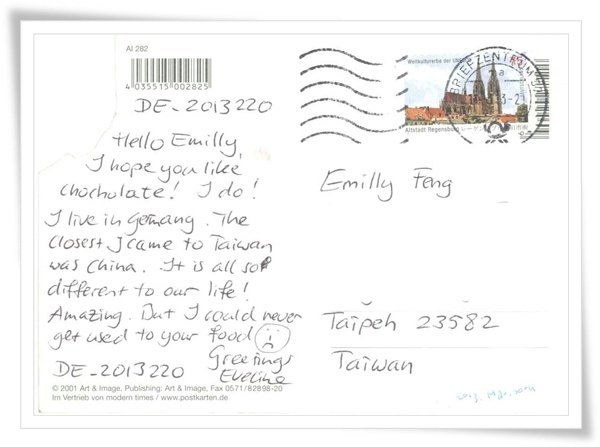 AI 282
4 035515 002825
DE-2013220
Hello Emilly,
I hope you like
chocholate! I do!
I live in Germany. The
closest I came to Taiwan
was China. It is all so
different to our life!
Amazing. But I could never
get used to your food
Greetings
Eveline
DE-2013220
© 2001 Art & Image, Publishing: Art & Image, Fax 0571/82898-20
Im Vertrieb von modern times / www.postkarten.de
Weltkulturerbe der UNESCO
Altstadt Regensburg
BRIEFZENTRUM
Emilly Feng
Taipeh 23582
Taiwan